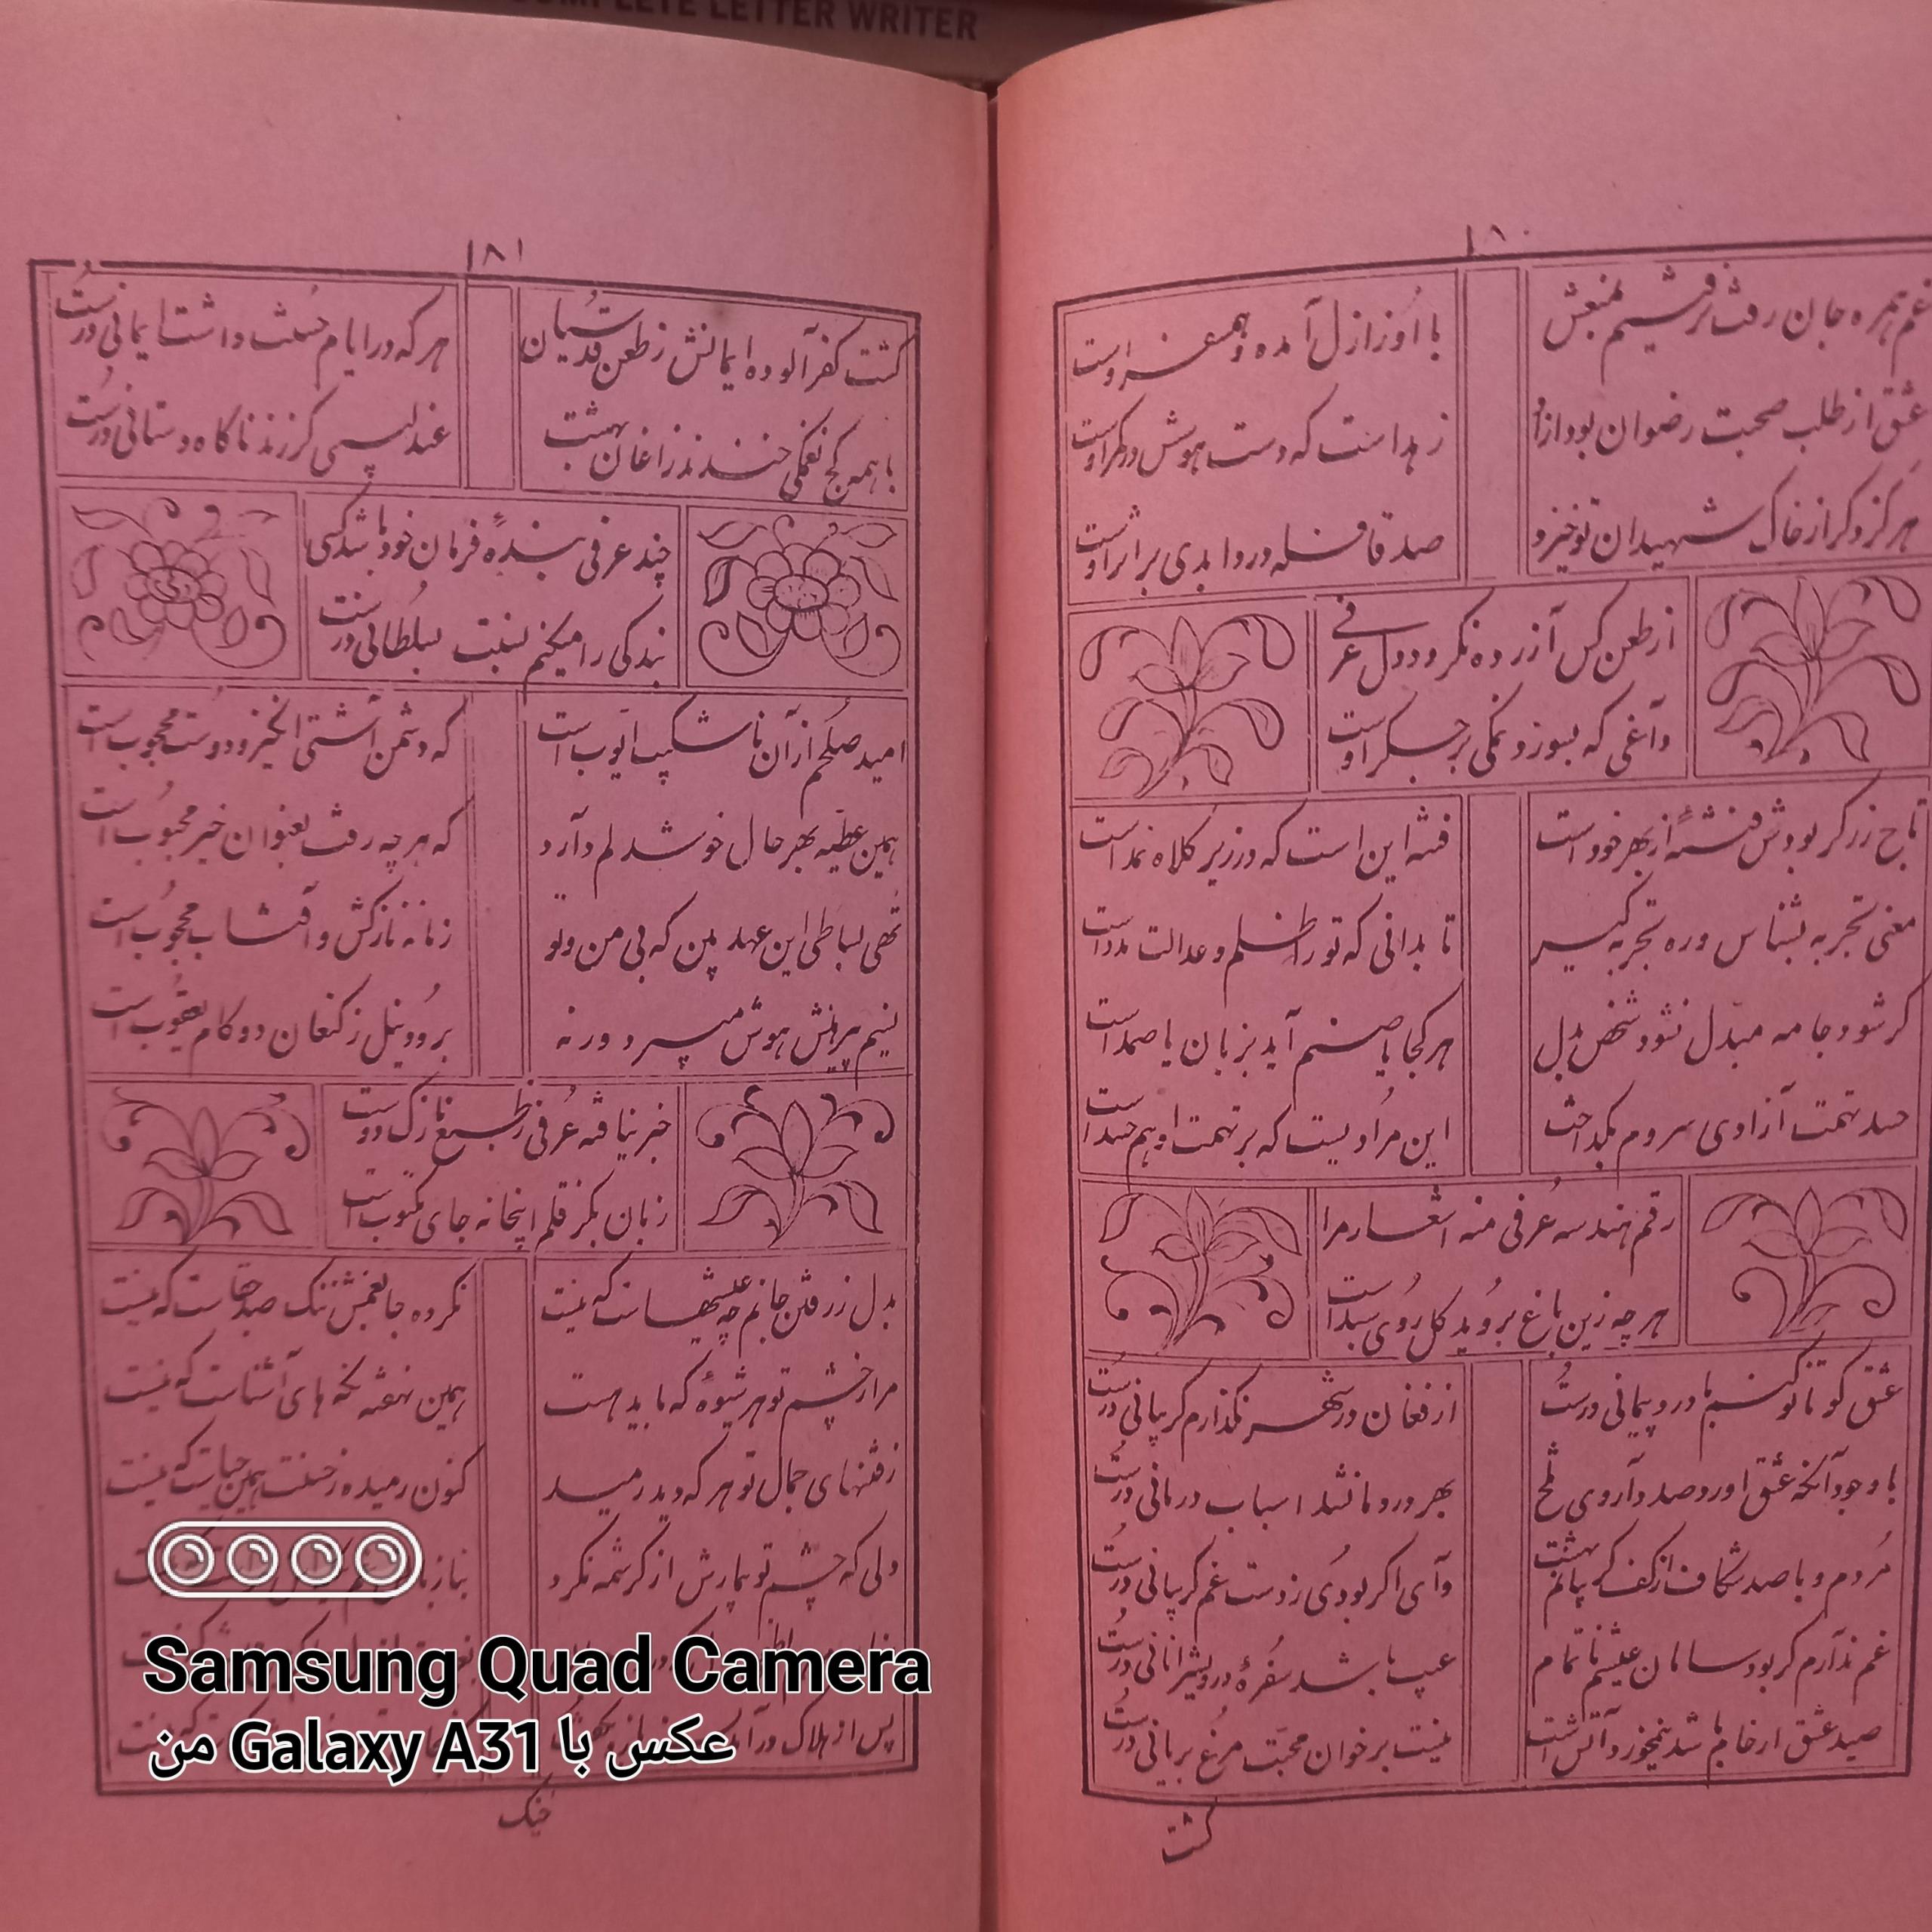 COMPLETE LETTER WRITER
۱۸۰
غم همره جان رفت ز عرفی منعش
با او ز ازل آمده و همسفر اوست
عشق از طلب صحبت رضوان بود آزاد
زهد است که دست هوش در کمر اوست
هر گز و کر از خاک شهیدان تو خیزد
صد قافله درد ابدی بر اثر اوست
از طعن کس آزرده نگردد دل عرفی
داغی که بسوزد نمکی بر جگر اوست
تاج زر کر بودش فتنهٔ از بهر خود است
فتنه این است که در زیر کلاه نمد است
معنی تجربه بشناس و ره تجربه گیر
تا بدانی که تو را ظلم و عدالت مدد است
کر شود جامه مبدل نشود شخص بدل
هر کجا یا صنم آید بزبان یا صمد است
حسد تهمت آزادی سروم بگداخت
این مرادیست که بر تهمت او هم حسد است
رقم هندسه عرفی منه اشعار مرا
هر چه زین باغ بروید گل روی سبد است
عشق کو تا نو کنم با درد پیمانی درست
از فغان در شهر نگذارم گریبانی درست
با وجود آنکه عشق اورد صد داروی تلخ
بهر درد ما نشد اسباب درمانی درست
مردم و با صد شکاف از کف که یابم بهشت
وای اگر بودی ز دست غم گریبانی درست
غم ندارم گر بود سامان عیشم ناتمام
عیب باشد سفرهٔ درویش را نانی درست
صید عشق ار خام باشد نیمخورد آتش است
نیست بر خوان محبت مرغ بریانی درست
گشت
۱۸۱
گشت کفر آلوده ایمانش ز طعن قدسیان
هر که در ایام حسنت داشت ایمانی درست
با همه کج نغمگی خندند زاغان بهشت
عندلیبی گر زند ناگاه دستانی درست
چند عرفی بندهٔ فرمان خود باشد کسی
بندگی را میکنم نسبت بسلطانی درست
امید صلحم از آن ناشکیب ایوب است
که دشمن آشتی انگیز و دوست محجوب است
همین عطیه بهر حال خوشدلم دارد
که هر چه رفت بعنوان خیر محبوب است
تهی بساطی این عهد بین که بی من و تو
زمانه نازکش و آفتاب محجوب است
نسیم پیرهنش هوش میبرد ور نه
برود نیل ز کنعان دو گام یعقوب است
خبر نیافته عرفی ز طبع نازک دوست
زبان بگز قلم اینجا نه جای مکتوب است
بدل ز رفتن جانم چه عیشهاست که نیست
نکرده جا بغمش تنگ صد جفاست که نیست
مرا ز چشم تو هر شیوهٔ که باید هست
همین نهفته نگه های آشناست که نیست
ز فتنهای جمال تو هر که دید رمید
کنون رمیده ز حسنت همین حیاست که نیست
دلی که چشم تو بیمارش از کرشمه نکرد
پس از هلاک
خنک
Samsung Quad Camera
عکس با Galaxy A31 من